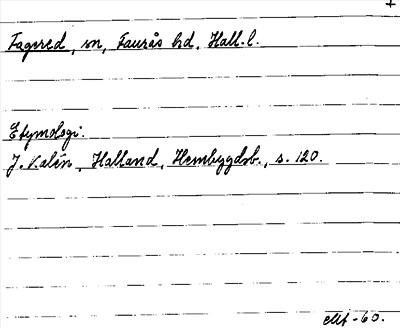 +
Fagered, sn, Faurås hd, Hall. l.
Etymologi:
J. Kalén, Halland, Hembygdsb., s. 120.
-60.